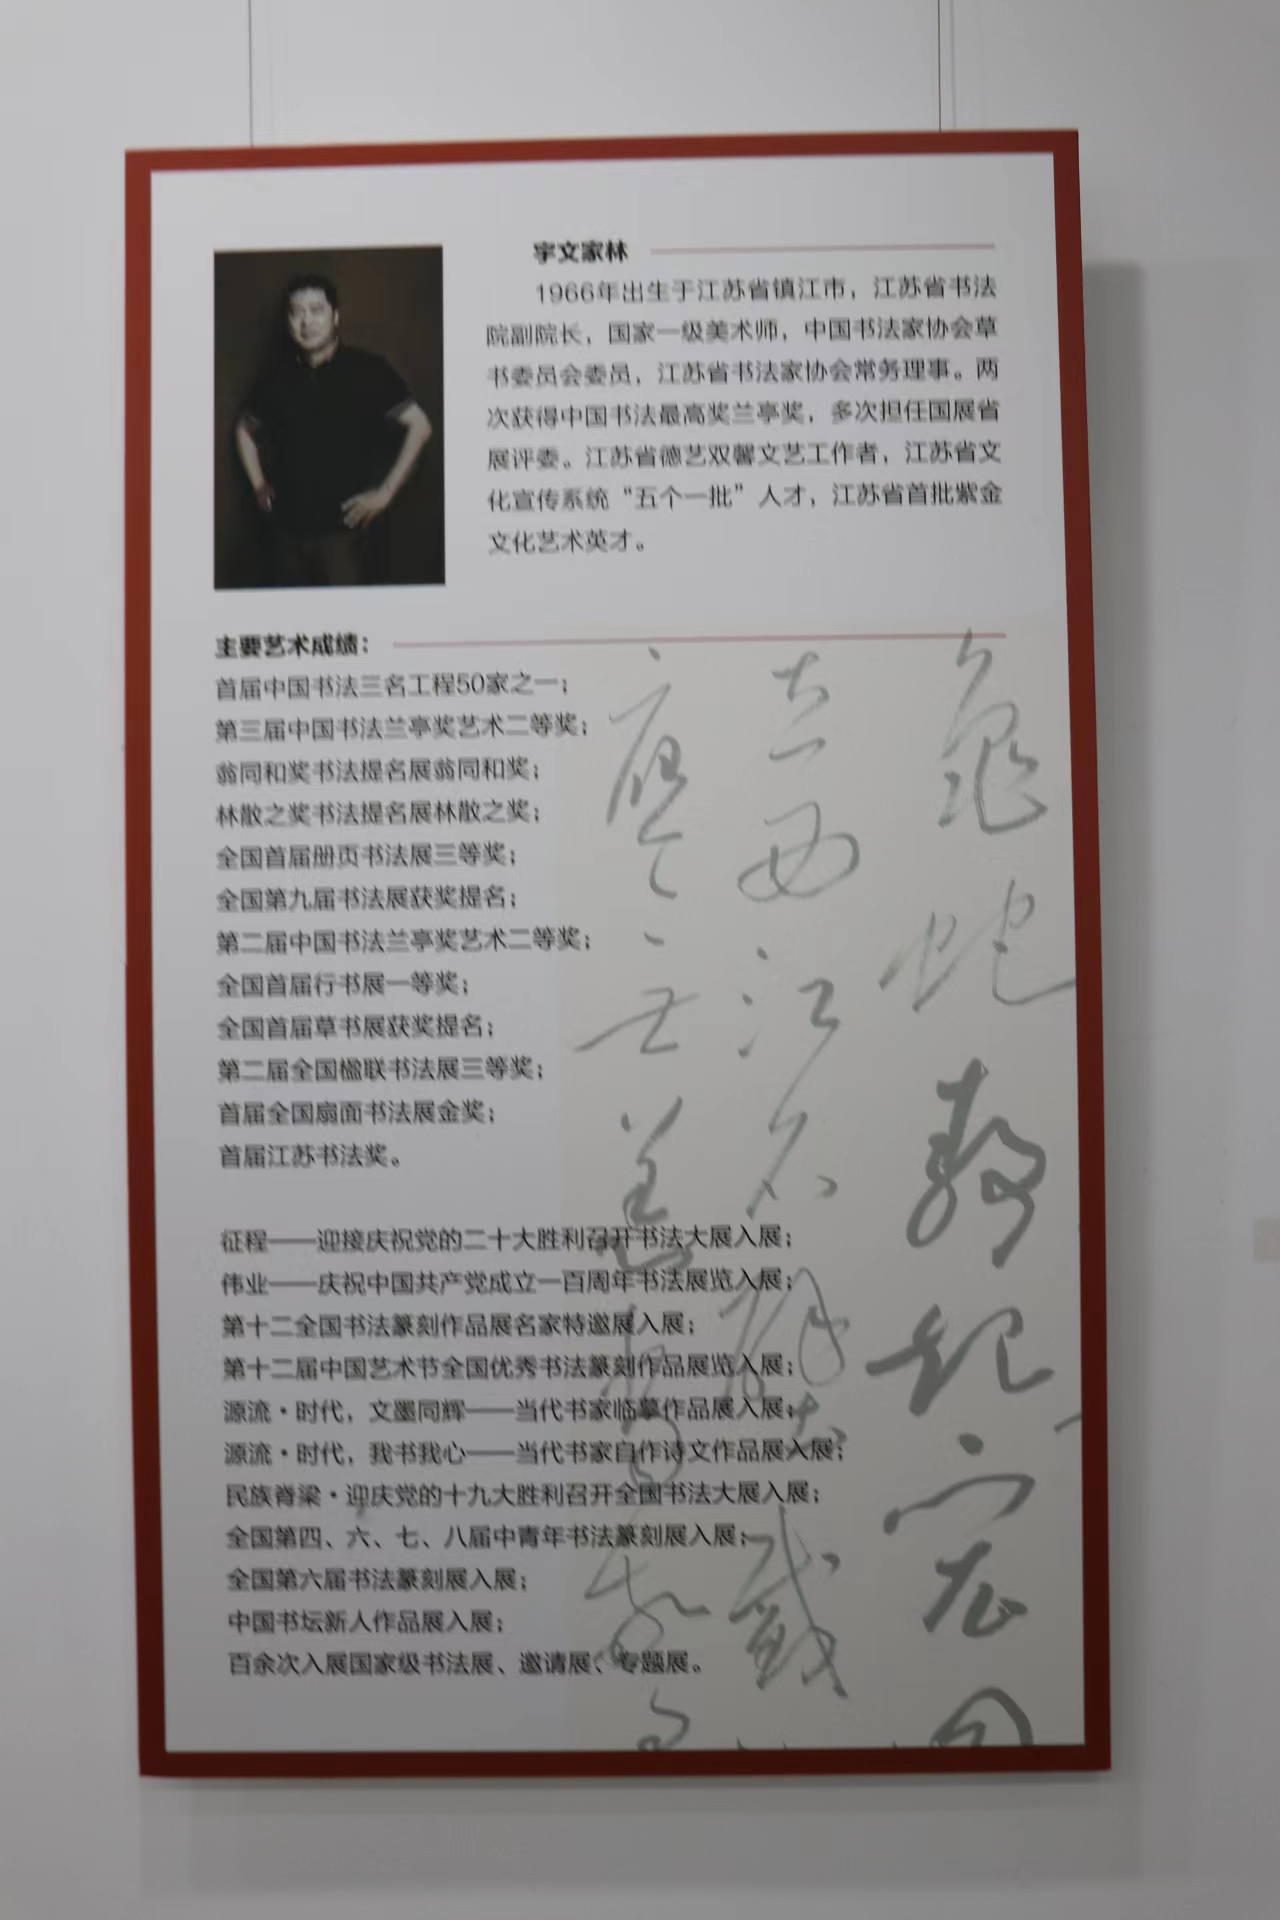 宇文家林
1966年出生于江苏省镇江市，江苏省书法
院副院长，国家一级美术师，中国书法家协会草
书委员会委员，江苏省书法家协会常务理事。两
次获得中国书法最高奖兰亭奖，多次担任国展省
展评委。江苏省德艺双馨文艺工作者，江苏省文
化宣传系统“五个一批”人才，江苏省首批紫金
文化艺术英才。
主要艺术成绩：
首届中国书法三名工程50家之一；
第三届中国书法兰亭奖艺术二等奖；
翁同和奖书法提名展翁同和奖；
林散之奖书法提名展林散之奖；
全国首届册页书法展三等奖；
全国第九届书法展获奖提名；
第二届中国书法兰亭奖艺术二等奖；
全国首届行书展一等奖；
全国首届草书展获奖提名；
第二届全国楹联书法展三等奖；
首届全国扇面书法展金奖；
首届江苏书法奖。
征程——迎接庆祝党的二十大胜利召开书法大展入展；
伟业——庆祝中国共产党成立一百周年书法展览入展；
第十二全国书法篆刻作品展名家特邀展入展；
第十二届中国艺术节全国优秀书法篆刻作品展览入展；
源流·时代，文墨同辉——当代书家临摹作品展入展；
源流·时代，我书我心——当代书家自作诗文作品展入展；
民族脊梁·迎庆党的十九大胜利召开全国书法大展入展；
全国第四、六、七、八届中青年书法篆刻展入展；
全国第六届书法篆刻展入展；
中国书坛新人作品展入展；
百余次入展国家级书法展、邀请展、专题展。